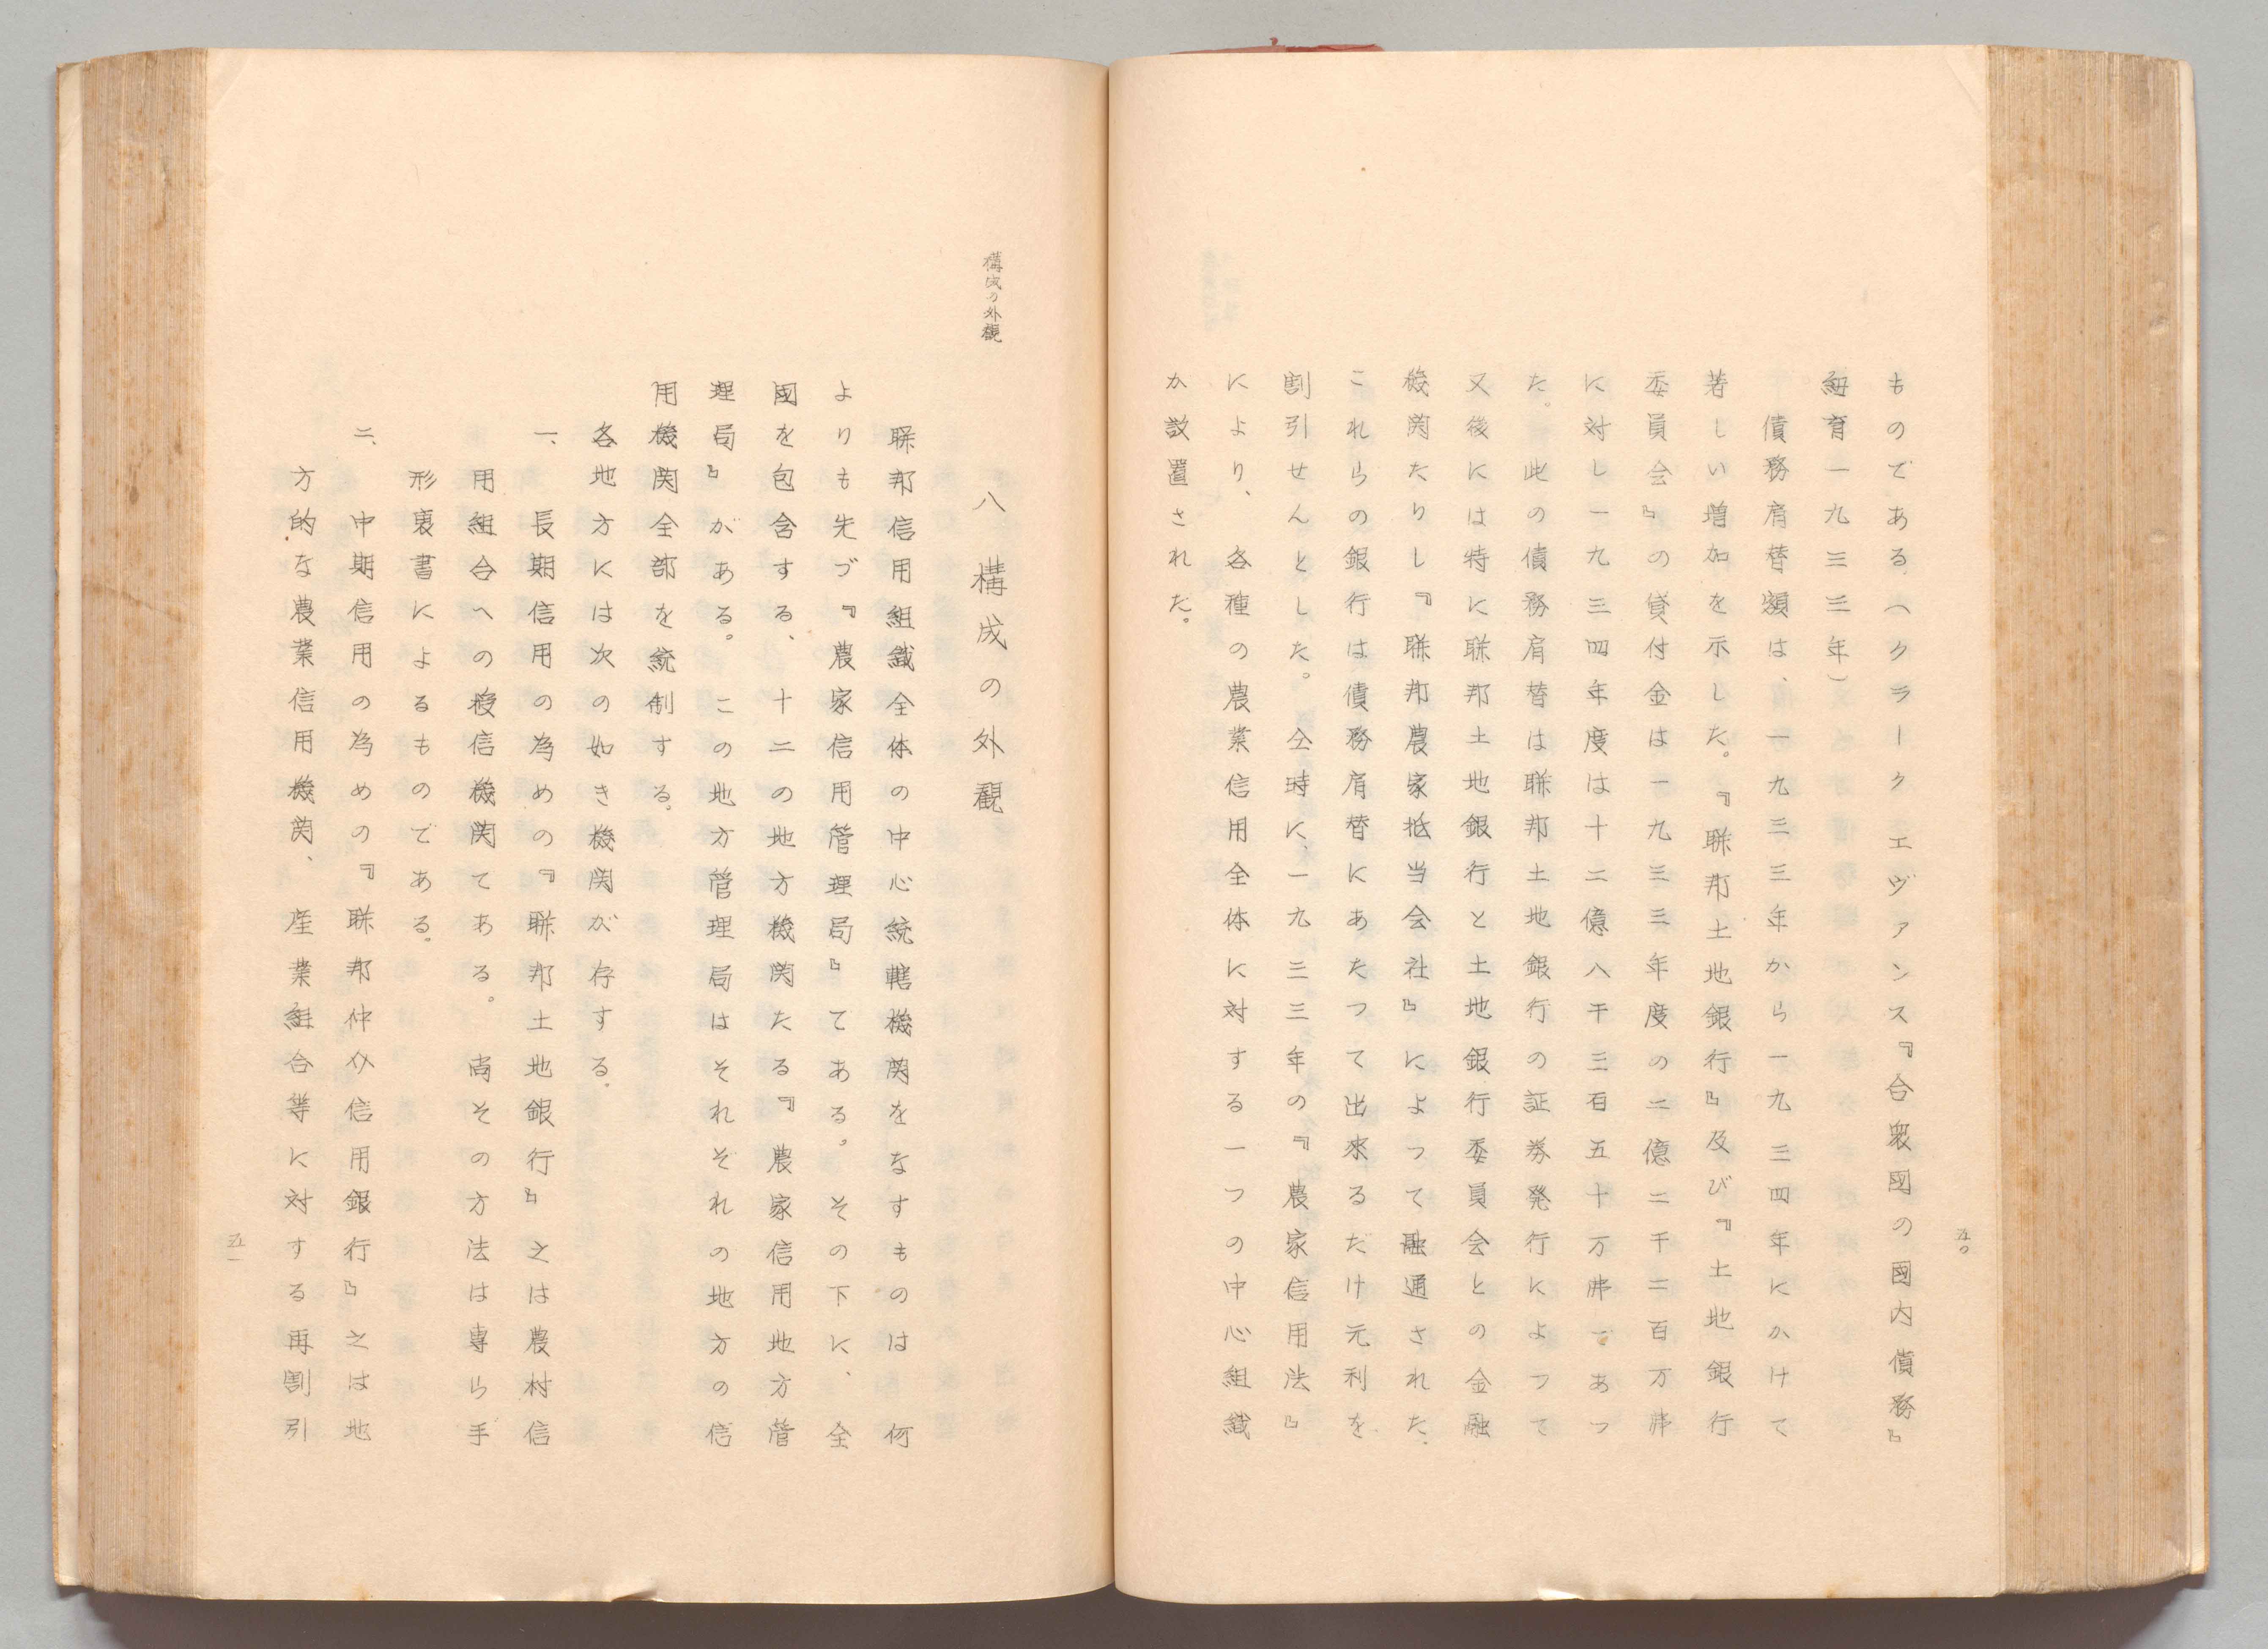 五〇
ものである（クラーク エヴァンス『合衆國の國内債務』
紐育一九三三年）
債務肩替額は、一九三三年から一九三四年にかけて
著しい増加を示した。『聯邦土地銀行』及び『土地銀行
委員会』の貸付金は一九三三年度の二億二千二百万弗
に対し一九三四年度は十二億八千三百五十万弗であつ
た。此の債務肩替は聯邦土地銀行の証券発行によつて
又後には特に聯邦土地銀行と土地銀行委員会との金融
機関たりし『聯邦農家抵当会社』によつて融通された。
これらの銀行は債務肩替にあたつて出來るだけ元利を
割引せんとした。仝時に、一九三三年の『農家信用法』
により、各種の農業信用全体に対する一つの中心組織
か設置された。
構成の外観
八 構成の外観
聯邦信用組織全体の中心統轄機関をなすものは何
よりも先づ『農家信用管理局』てある。その下に、全
國を包含する、十二の地方機関たる『農家信用地方管
理局』がある。この地方管理局はそれぞれの地方の信
用機関全部を統制する。
各地方には次の如き機関が存する。
一、長期信用の為めの『聯邦土地銀行』之は農村信
用組合への授信機関てある。尚その方法は専ら手
形裏書によるものである。
二、中期信用の為めの『聯邦仲介信用銀行』之は地
方的な農業信用機関、産業組合等に対する再割引
五一